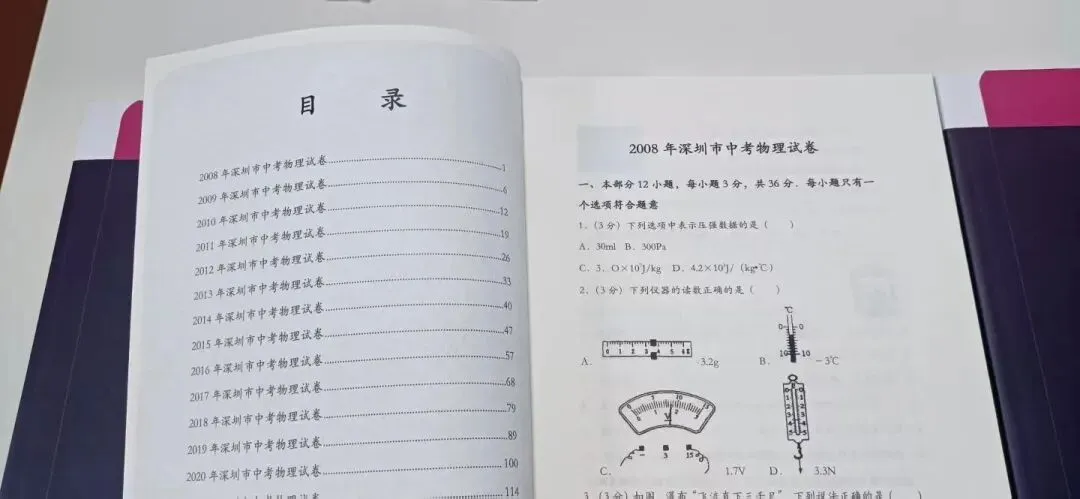 目 录
2008 年深圳市中考物理试卷........1
2009 年深圳市中考物理试卷........6
2010 年深圳市中考物理试卷........12
2011 年深圳市中考物理试卷........19
2012 年深圳市中考物理试卷........26
2013 年深圳市中考物理试卷........33
2014 年深圳市中考物理试卷........40
2015 年深圳市中考物理试卷........47
2016 年深圳市中考物理试卷........57
2017 年深圳市中考物理试卷........68
2018 年深圳市中考物理试卷........79
2019 年深圳市中考物理试卷........89
2020 年深圳市中考物理试卷........100
114
2008 年深圳市中考物理试卷
一、本部分 12 小题，每小题 3 分，共 36 分．每小题只有一
个选项符合题意
1．（3 分）下列选项中表示压强数据的是（ ）
A．30ml B．300Pa
C．3．O×10⁷J/kg D．4.2×10³J/（kg•℃）
2．（3 分）下列仪器的读数正确的是（ ）
℃
0 0
10 10
0 1 2 3 4 5
A． 3.2g B． －3℃
0 5 10 15
V
－ 3 15
C． 1.7V D． 3.3N
3．（3 分）如图，瀑布“飞流直下三千尺”，下列说法正确的是（